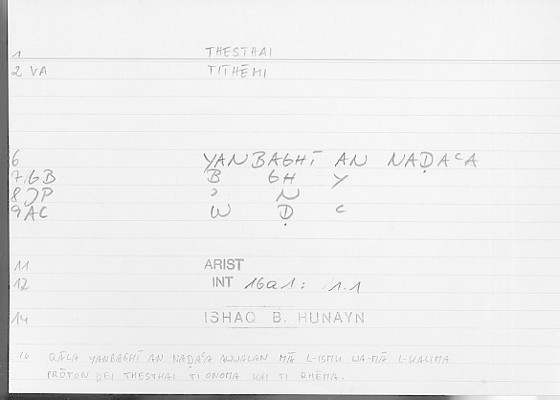 1 THESTHAI
2 VA TITHĒMI
6 YANBAGHĪ AN NAḌAʿA
7,GB B GH Y
8 JP ʾ N
9 AC W Ḍ ʿ
11 ARIST
12 INT 16a1: 1.1
14 ISHAQ B. HUNAYN
16 QĀLA YANBAGHĪ AN NAḌAʿA AWWALAN MĀ L-ISMU WA-MĀ L-KALIMA
PRŌTON DEI THESTHAI TI ONOMA KAI TI RHĒMA.